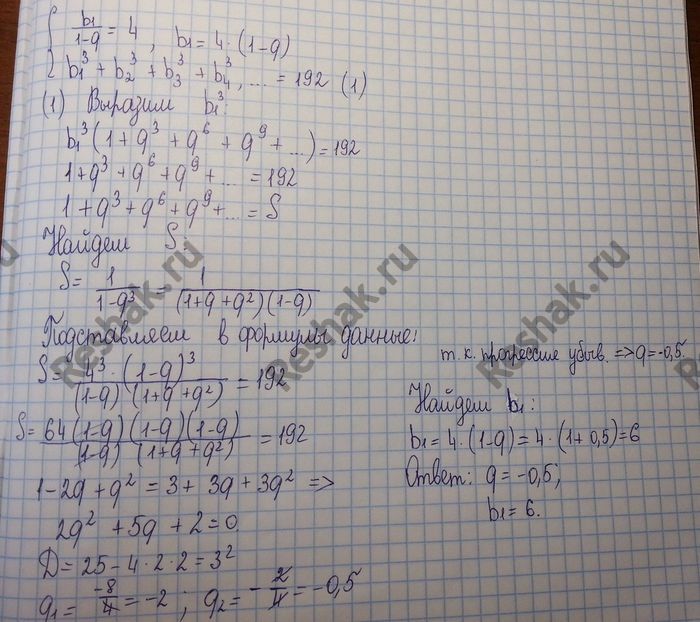 { b₁/(1-q) = 4 , b₁ = 4·(1-q)
b₁³ + b₂³ + b₃³ + b₄³, ... = 192 (1)
(1) Выразим b₁³:
b₁³(1+q³+q⁶+q⁹+...) = 192
1+q³+q⁶+q⁹+... = 192
1+q³+q⁶+q⁹+... = S
Найдем S:
S = 1/(1-q³) = 1/((1+q+q²)(1-q))
Подставляем в формулы данные:
S = 4³·(1-q)³/((1-q)(1+q+q²)) = 192
S = 64(1-q)(1-q)(1-q)/((1-q)(1+q+q²)) = 192
1-2q+q² = 3+3q+3q² =>
2q²+5q+2=0
D = 25-4·2·2 = 3²
q₁ = -8/4 = -2 ; q₂ = -2/4 = -0,5
т.к. прогрессия убыв. => q = -0,5.
Найдем b₁:
b₁ = 4·(1-q) = 4·(1+0,5) = 6
Ответ: q = -0,5;
b₁ = 6.
Reshak.ru
Reshak.ru
Reshak.ru
Reshak.ru